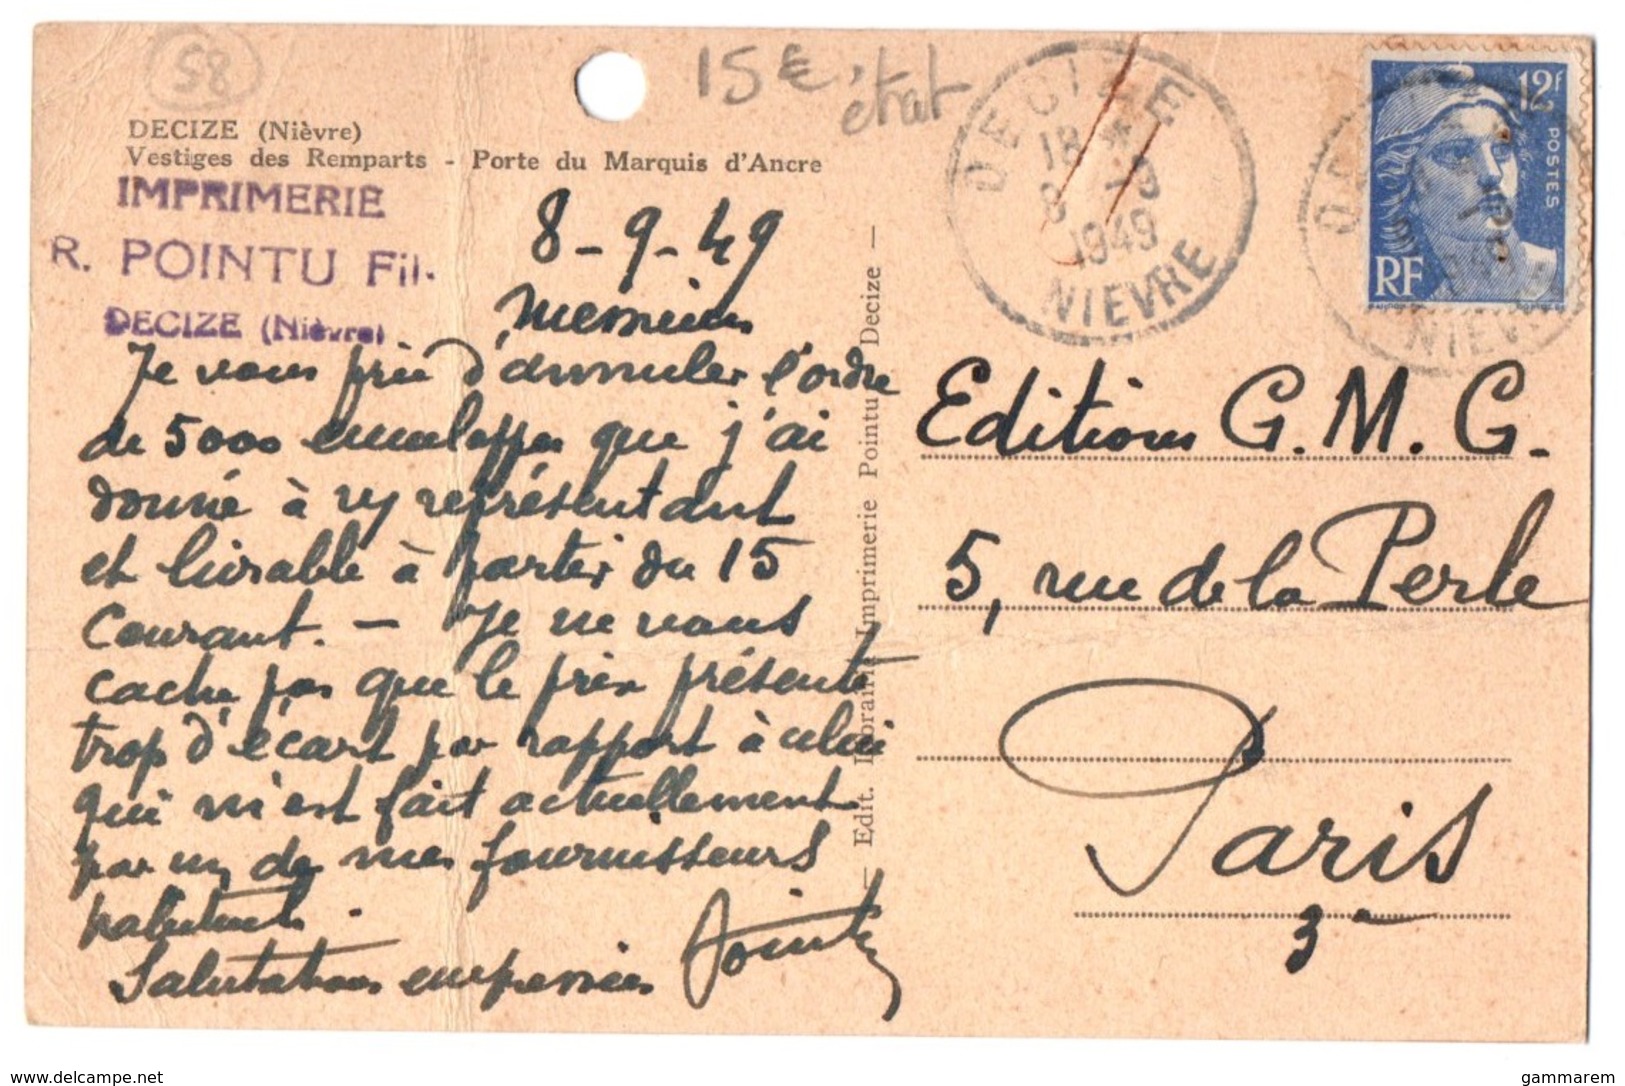 58
15€ état
DECIZE (Nièvre)
Vestiges des Remparts - Porte du Marquis d'Ancre
IMPRIMERIE
R. POINTU Fil.
DECIZE (Nièvre)
8-9-49
Messieurs
Je vous prie d'annuler l'ordre
de 5000 enveloppes que j'ai
donné à représentant
et livrable à partir du 15
Courant. - Je ne vous
cache pas que le prix présente
trop d'écart par rapport à celui
qui m'est fait actuellement
par un de mes fournisseurs
Salutations empressées Pointu
— Edit. Librairie Imprimerie Pointu Decize —
DECIZE
18 * 
8 -9
1949
NIEVRE
12F
POSTES
RF
NIEV
Editions G.M.G.
5, rue de la Perle
Paris
3e
delcampe.net
gammarem